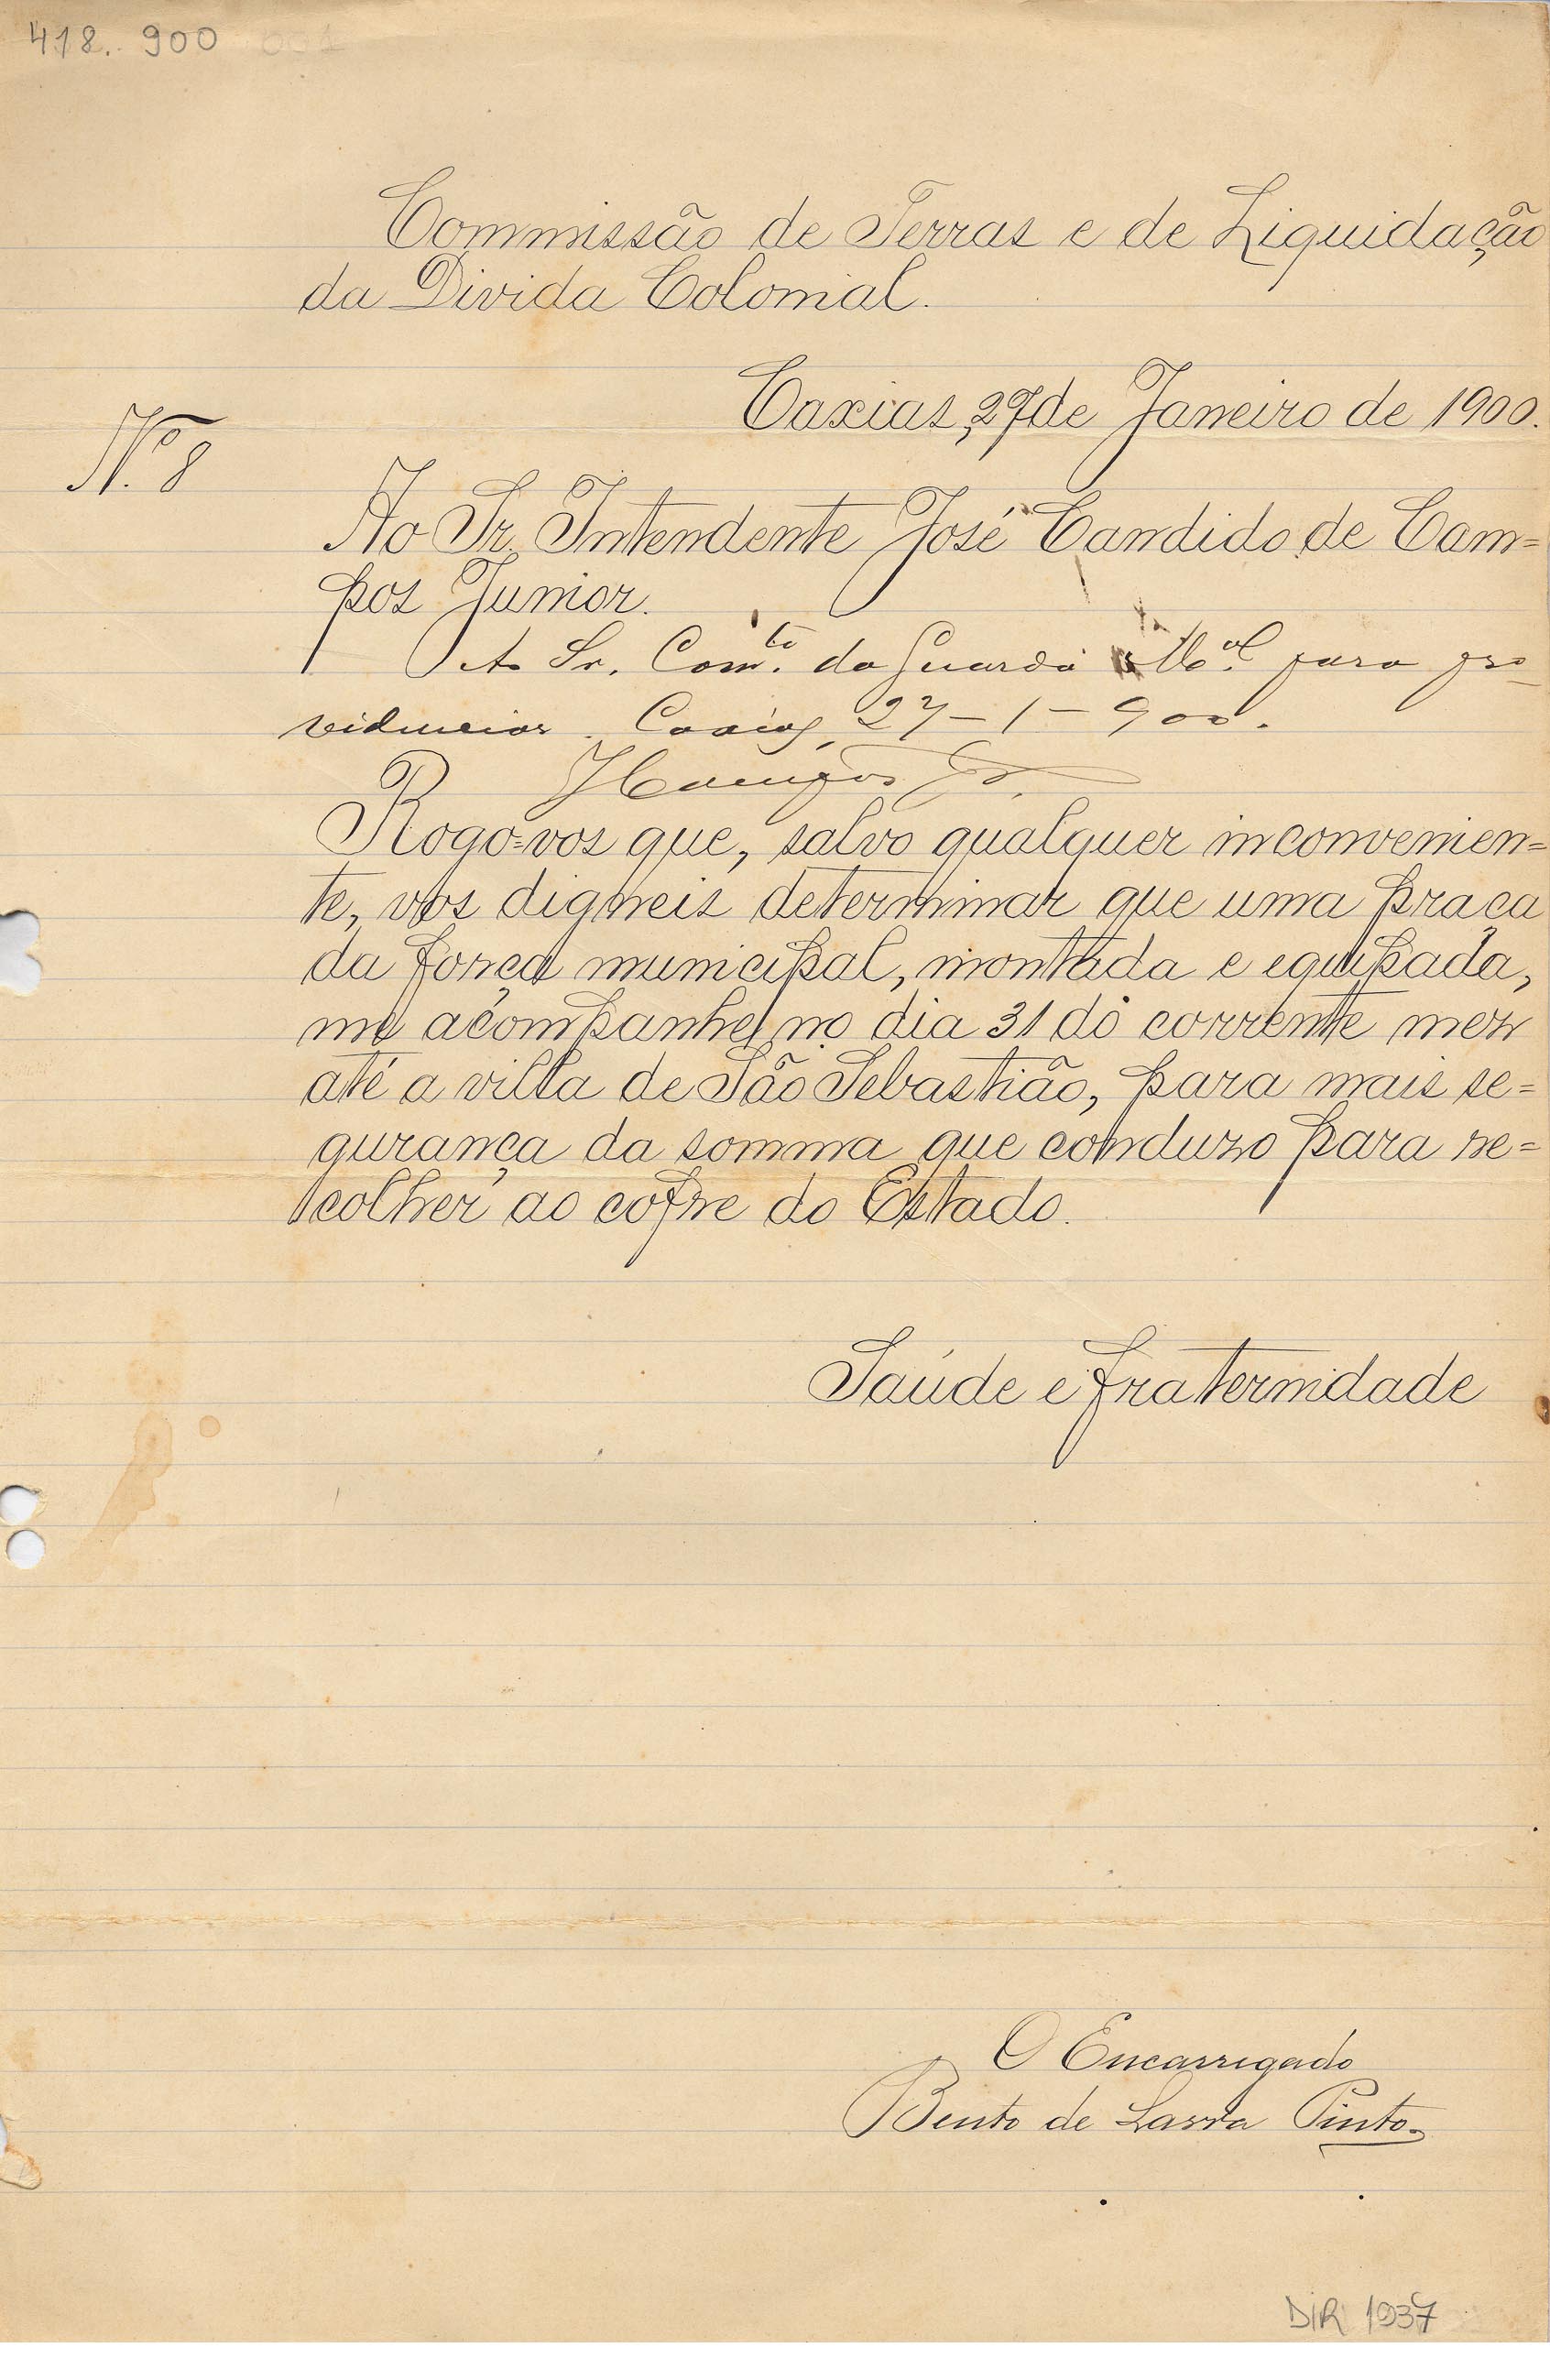 418. 900 001
Commissão de Terras e de Liquidação
da Divida Colonial.
Caxias, 27 de Janeiro de 1900.
Nº. 8
Ao Sr. Intendente José Candido de Cam=
pos Junior.
Ao Sr. Com.te da Guarda M.al para pro
videnciar. Caxias, 27-1-900.
JCampos Jr.
Rogo=vos que, salvo qualquer inconvenien=
te, vos digneis determinar que uma praça
da força municipal, montada e equipada,
me acompanhe no dia 31 do corrente mez
até a villa de São Sebastião, para mais se=
gurança da somma que conduzo para re=
colher ao cofre do Estado.
Saúde e fraternidade
O Encarregado
Bento de Lavra Pinto.
DIR 1937